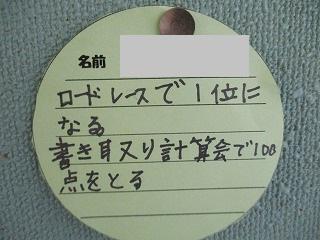 名前
ロードレースで1位に
なる
書き取り計算会で100
点をとる